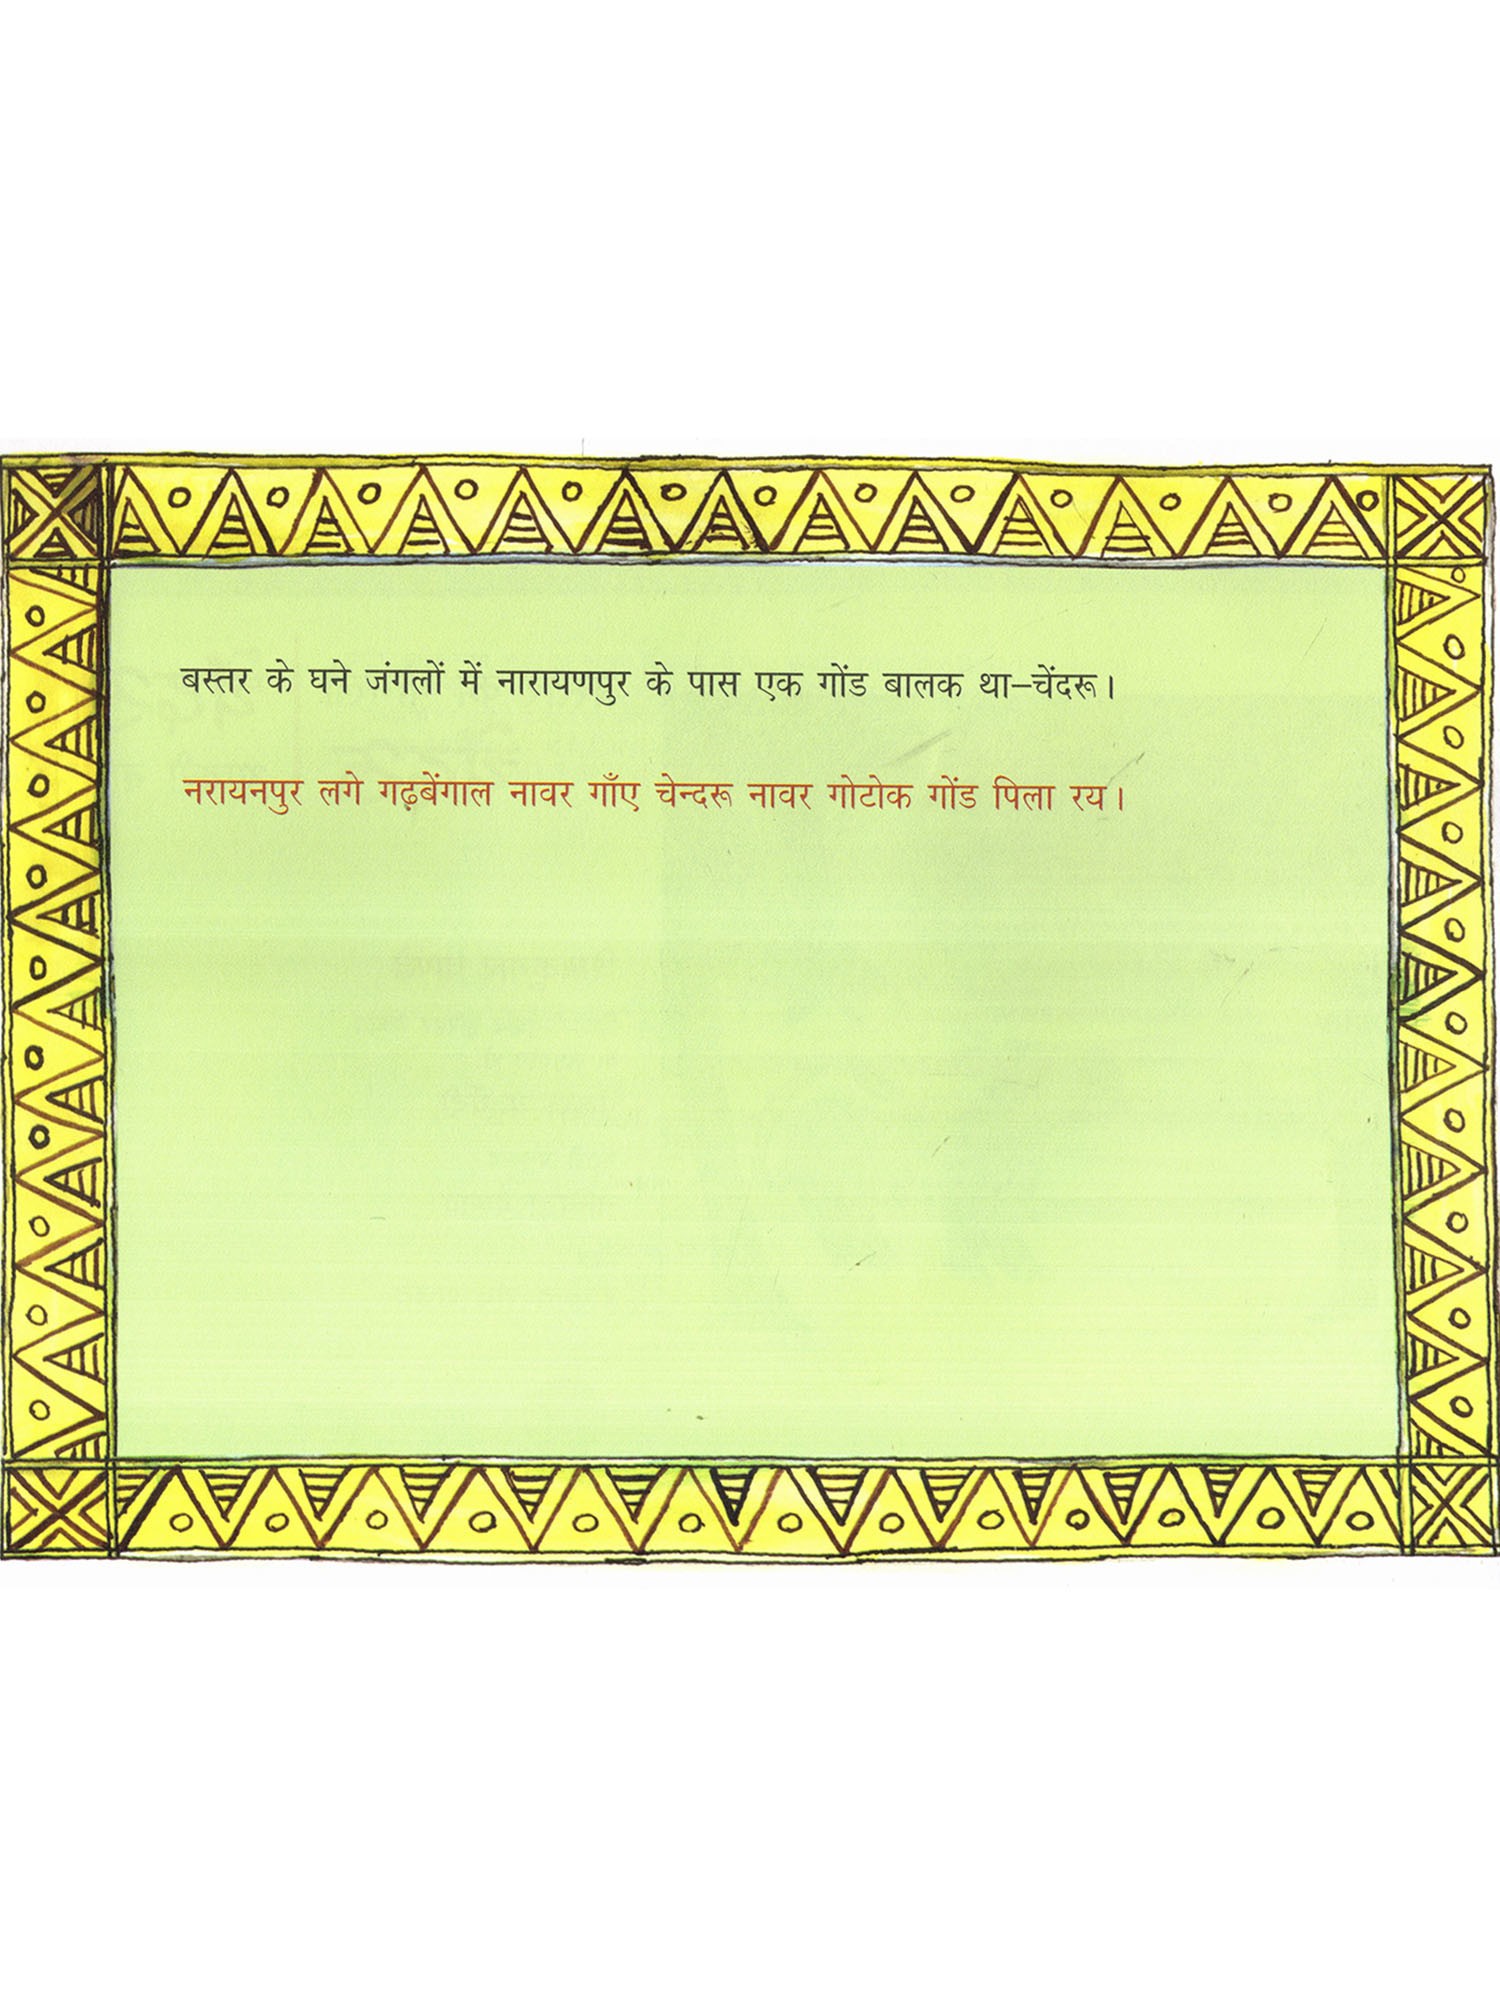 बस्तर के घने जंगलों में नारायणपुर के पास एक गोंड बालक था–चेंदरू।
नरायनपुर लगे गढ़बेंगाल नावर गाँए चेन्दरू नावर गोटोक गोंड पिला रय।